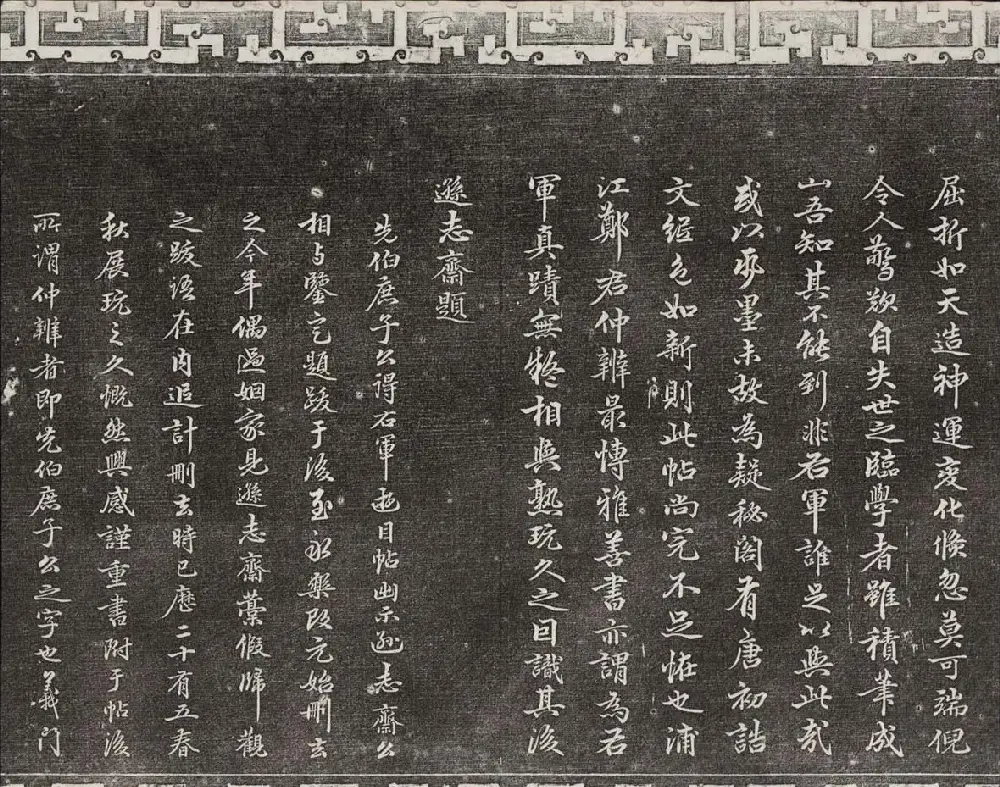 屈折如天造神運变化倏忽莫可端倪
令人驚歎自失世之臨學者雖積筆成
山吾知其不能到非右軍誰足以與此哉
或以秉墨未故為疑秘閣有唐初誥
文紙色如新則此帖尚完不足恠也浦
江鄭君仲辨最博雅善書亦謂為右
軍真蹟無疑相與熟玩久之因識其後
遜志齋題
先伯庶子公得右軍遊目帖出示遜志齋公
相与鑒定題跋于後至永樂改元始刪去
之今年偶過姻家見遜志齋藁假歸觀
之跋語在內追計刪去時已歷二十有五春
秋展玩之久慨然興感謹重書附于帖後
所謂仲辨者即先伯庶子公之字也義门